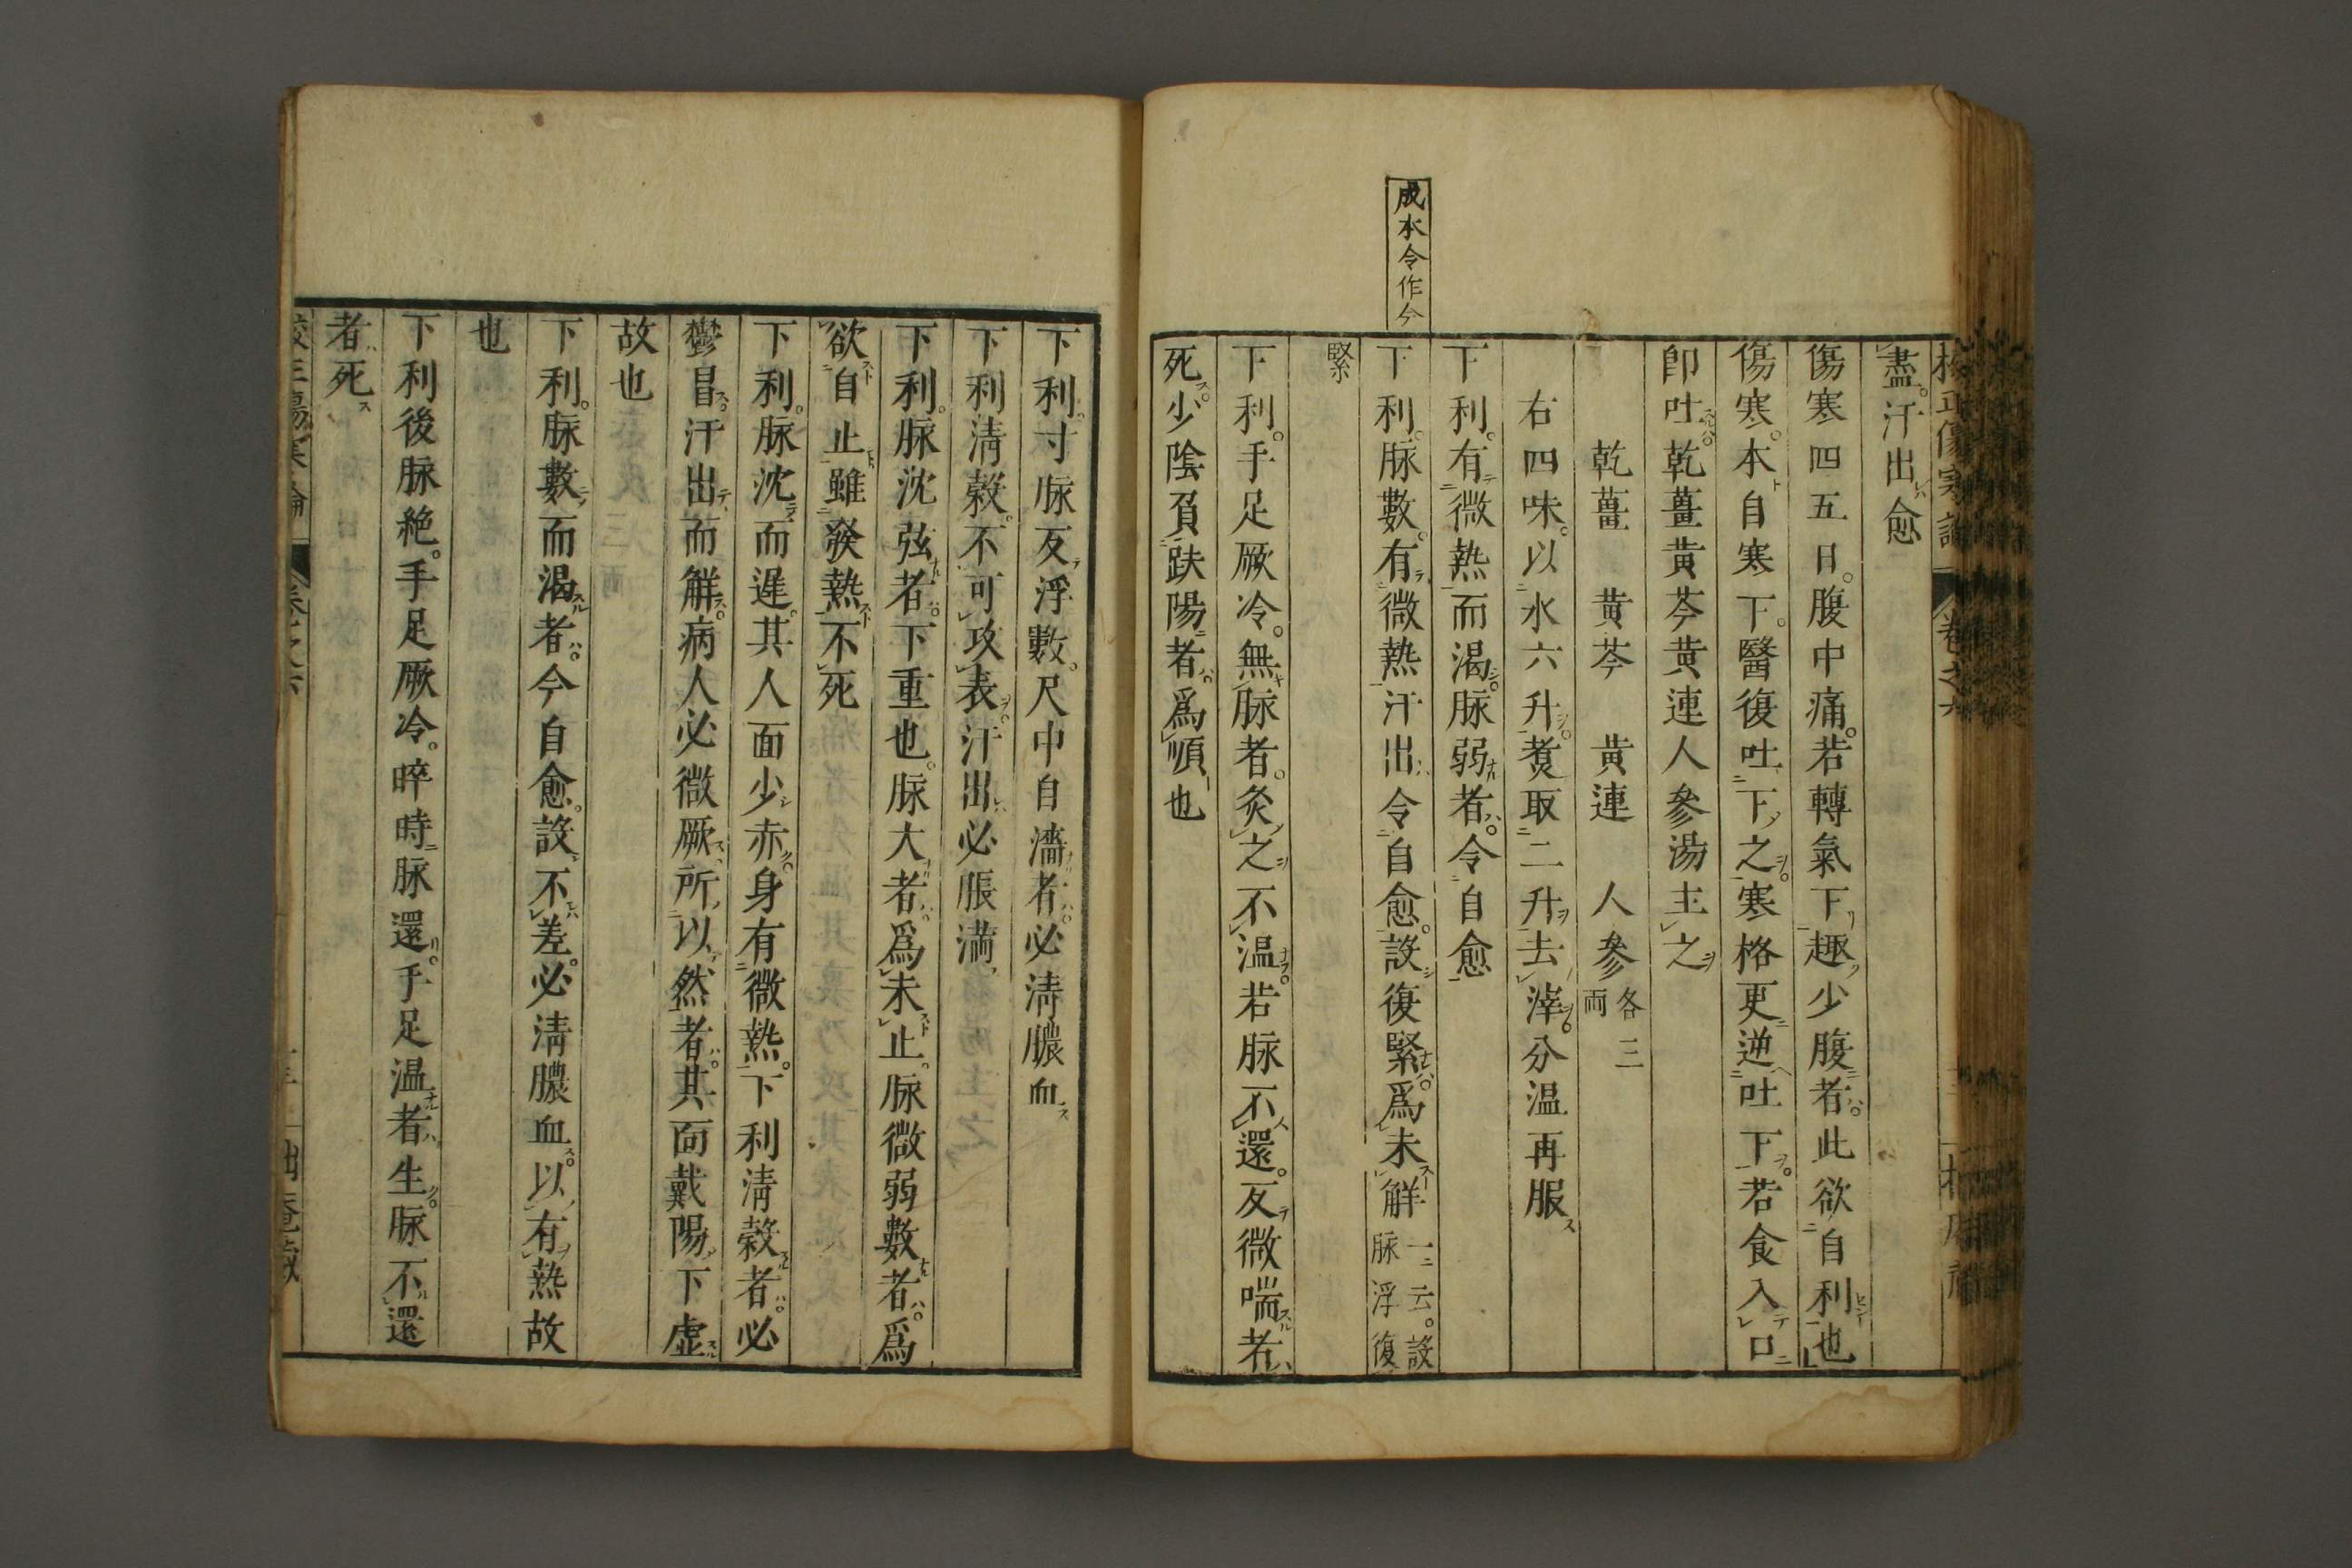 盡。汗出愈
傷寒四五日。腹中痛。若轉氣下趣少腹者。此欲自利也
傷寒。本自寒下。醫復吐下之。寒格更逆吐下。若食入口
即吐。乾薑黃芩黃連人參湯主之
乾薑　黃芩　黃連　人參各三兩
右四味。以水六升。煑取二升去滓。分温再服
下利。有微熱而渴。脉弱者。令自愈
成本令作今
下利。脉數。有微熱汗出。令自愈。設復緊。爲未解一云。設脉浮復
緊
下利。手足厥冷。無脉者。灸之不温。若脉不還。反微喘者
死。少陰負趺陽者。爲順也
下利。寸脉反浮數。尺中自濇者。必清膿血
下利清穀。不可攻表。汗出必脹滿
下利。脉沈弦者。下重也。脉大者。爲未止。脉微弱數者。爲
欲自止。雖發熱不死
下利。脉沈而遲。其人面少赤。身有微熱。下利清穀者。必
鬱冒。汗出而解。病人必微厥。所以然者。其面戴陽。下虚
故也
下利。脉數而渴者。今自愈。設不差。必清膿血。以有熱故
也
下利後脉絶。手足厥冷。晬時脉還。手足温者生。脉不還
者死